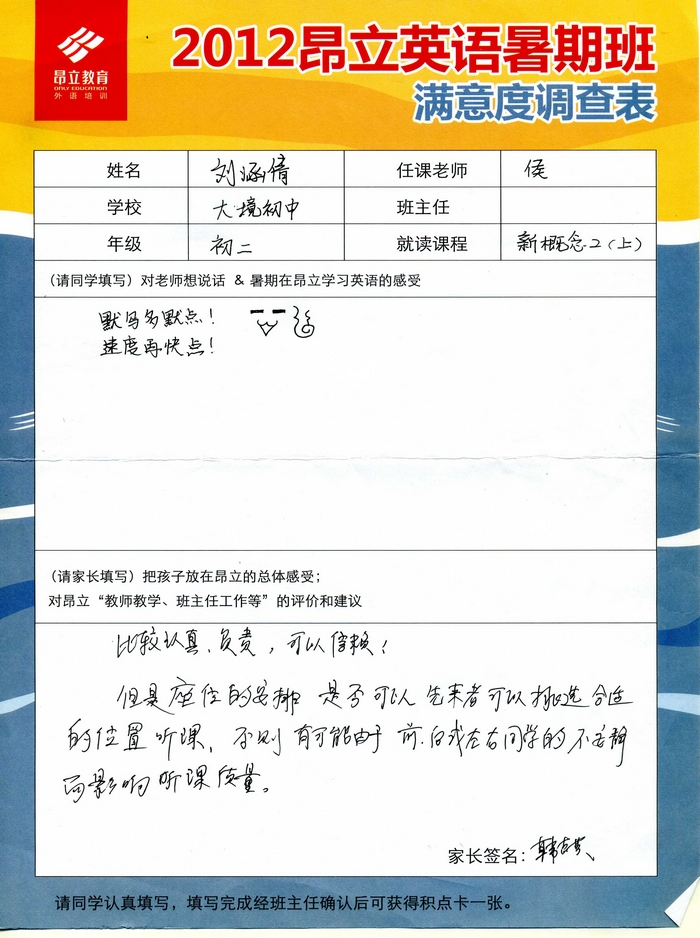 昂立教育
ONLY EDUCATION
外语培训
2012昂立英语暑期班
满意度调查表
姓名 刘涵倩 任课老师 侯
学校 大境初中 班主任
年级 初二 就读课程 新概念2(上)
(请同学填写)对老师想说话 & 暑期在昂立学习英语的感受
默写多默点!
速度再快点!
(请家长填写)把孩子放在昂立的总体感受;
对昂立“教师教学、班主任工作等”的评价和建议
比较认真、负责,可以信赖!
但是座位的安排 是否可以 先来者可以挑选合适
的位置听课,否则 有可能由于 前、后或左右同学的不安静
而影响听课质量。
家长签名:韩
请同学认真填写,填写完成经班主任确认后可获得积点卡一张。